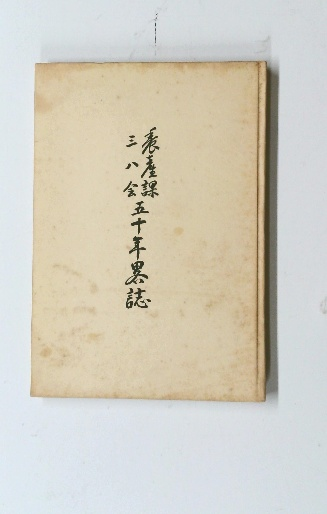 農産課
三八会
五十年畧誌